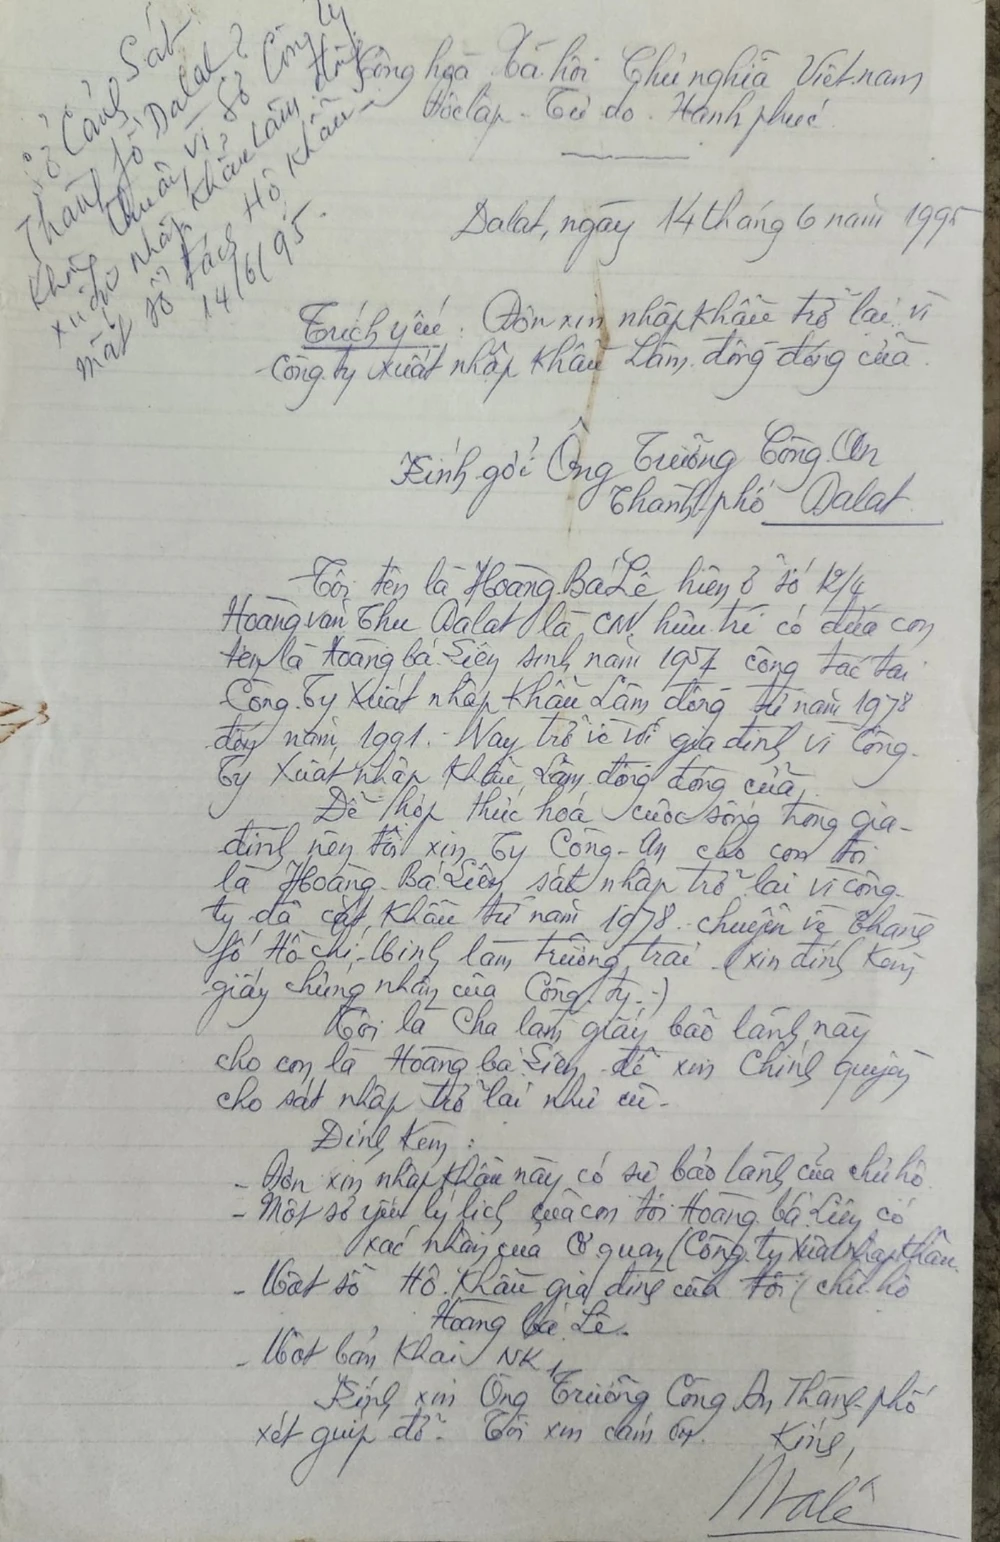 Sở Cảnh Sát
Thành fố Dalat ?
Không thuận vì Sở Công ty
xuất nhập khẩu Lâm Đồng
mất sổ tách Hộ khẩu
14/6/95.
Cộng hoà Xã hội Chủ nghĩa Việt nam
Độc lập - Tự do - Hạnh phúc
Dalat, ngày 14 tháng 6 năm 1995
Trích yếu : Đơn xin nhập khẩu trở lại vì
Công ty xuất nhập khẩu Lâm đồng đóng cửa.
Kính gởi Ông Trưởng Công An
Thành phố Dalat
Tôi tên là Hoàng Bá Lê hiện ở số 12/4
Hoàng văn Thu Dalat là CNV hưu trí có đứa con
tên là Hoàng bá Liên sinh năm 1957 công tác tại
Công Ty Xuất nhập khẩu Lâm đồng từ năm 1978
đến năm 1991. Nay trở về với gia đình vì Công
Ty Xuất nhập khẩu Lâm đồng đóng cửa.
Để hợp thức hoá cuộc sống trong gia-
đình nên tôi xin Ty Công-An cho con tôi
là Hoàng Bá Liên sát nhập trở lại vì công
ty đã cắt khẩu từ năm 1978 chuyển về Thành
fố Hồ chí Minh làm trưởng trại (xin đính kèm
giấy chứng nhận của Công ty.)
Tôi là Cha làm giấy bảo lãnh này
cho con là Hoàng bá Liên để xin Chính quyền
cho sát nhập trở lại như cũ.
Đính Kèm :
- Đơn xin nhập khẩu này có sự bảo lãnh của chủ hộ
- Một sơ yếu lý lịch của con tôi Hoàng bá Liên có
xác nhận của Cơ quan (Công ty Xuất nhập khẩu
- Một sổ Hộ khẩu gia đình của tôi (chủ hộ
Hoàng bá Lê.
- Một bản khai NK
Kính xin Ông Trưởng Công An Thành phố
xét giúp đỡ. Tôi xin cám ơn. Kính,